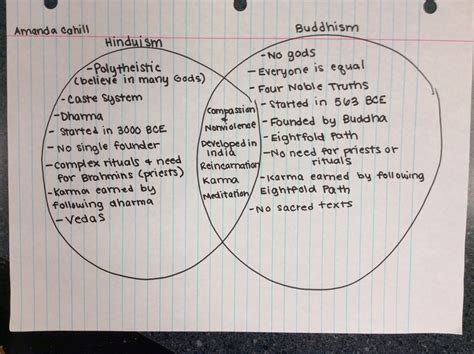 Amanda Cahill
Hinduism
- Polytheistic
(believe in many Gods)
- Caste System
- Dharma
- Started in 3000 BCE
- No single founder
- complex rituals & need
for Brahmins (priests)
- Karma earned by
following dharma
- Vedas
Compassion
&
Nonviolence
Developed in
India
Reincarnation
Karma
Meditation
Buddhism
- No gods
- Everyone is equal
- Four Noble Truths
- Started in 563 BCE
- Founded by Buddha
- Eightfold Path
- No need for priests or
rituals
- Karma earned by following
Eightfold Path
- No sacred texts